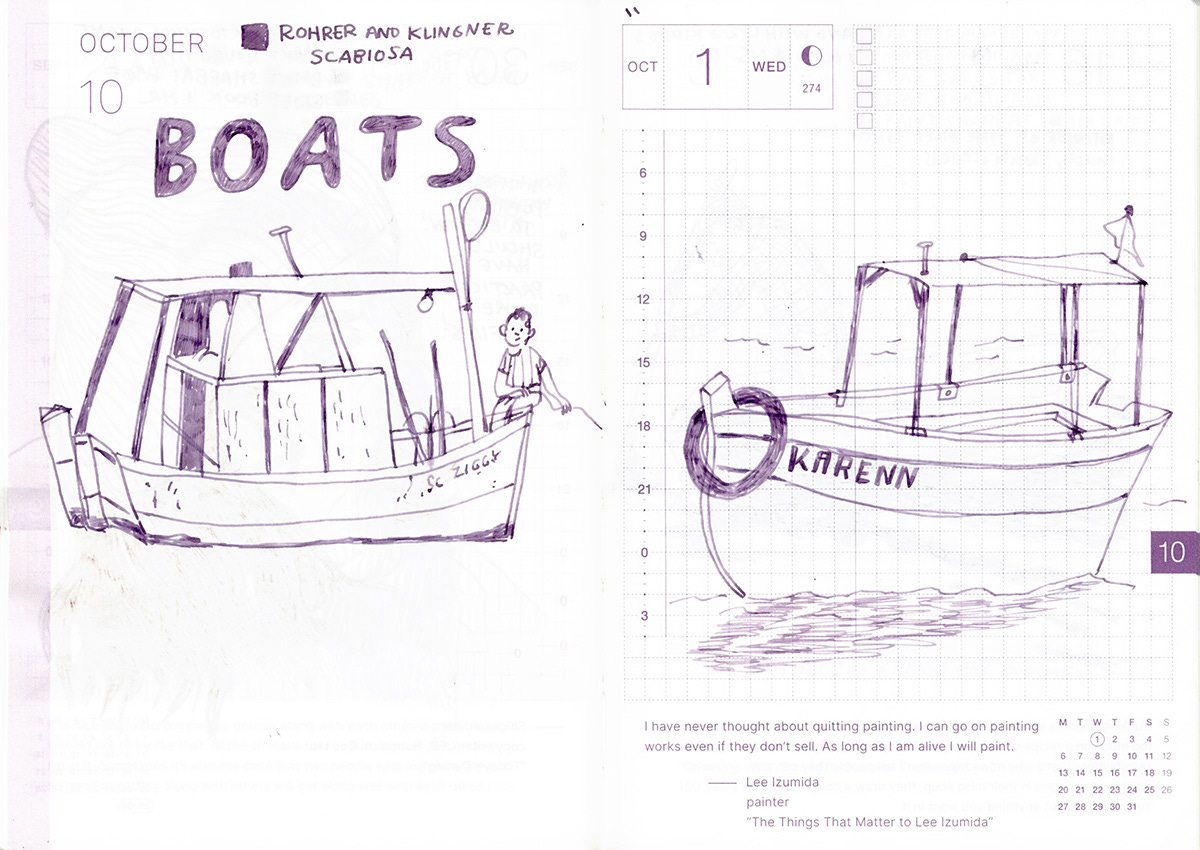 OCTOBER
10
ROHRER AND KLINGNER
SCABIOSA
BOATS
SC ZIGGY
OCT 1 WED
274
6
9
12
15
18
21
0
3
KARENN
10
I have never thought about quitting painting. I can go on painting
works even if they don't sell. As long as I am alive I will paint.
Lee Izumida
painter
"The Things That Matter to Lee Izumida"
M T W T F S S
1 2 3 4 5
6 7 8 9 10 11 12
13 14 15 16 17 18 19
20 21 22 23 24 25 26
27 28 29 30 31